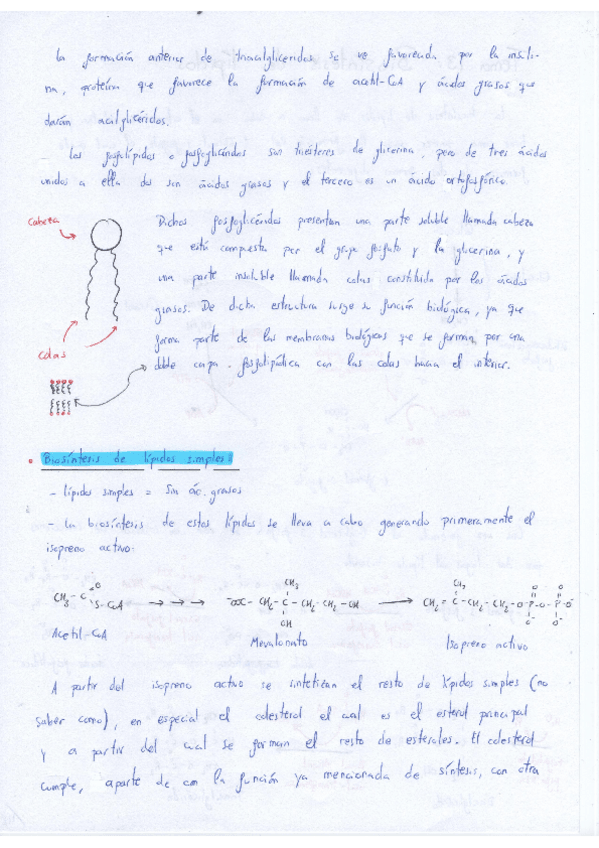 La formación anterior de triacilglicéridos se ve favorecida por la insuli-
na, proteína que favorece la formación de acetil-CoA y ácidos grasos que
darán acilglicéridos.
- Los fosfolípidos o fosfoglicéridos son triésteres de glicerina, pero de tres ácidos
unidos a ella dos son ácidos grasos y el tercero es un ácido ortofosfórico.
Cabeza
Dichos fosfoglicéridos presentan una parte soluble llamada cabeza
que está compuesta por el grupo fosfato y la glicerina, y
una parte insoluble llamada colas constituida por los ácidos
grasos. De dicha estructura surge su función biológica, ya que
forma parte de las membranas biológicas que se forman por una
colas
doble capa fosfolipídica con las colas hacia el interior.
• Biosíntesis de lípidos simples:
- Lípidos simples = Sin ác. grasos
- La biosíntesis de estos lípidos se lleva a cabo generando primeramente el
isopreno activo:
CH3 CH2
CH3 - C O S-CoA → → → -OOC - CH2 - C - CH2 - CH2 - OH → CH2 = C - CH2 - CH2 - O - P - O - P - O-
OH
Acetil-CoA Mevalonato Isopreno activo
A partir del isopreno activo se sintetizan el resto de lípidos simples (no
saber como), en especial el colesterol el cual es el esterol principal
y a partir del cual se forman el resto de esterales. El colesterol
cumple, aparte de con la función ya mencionada de síntesis, con otra